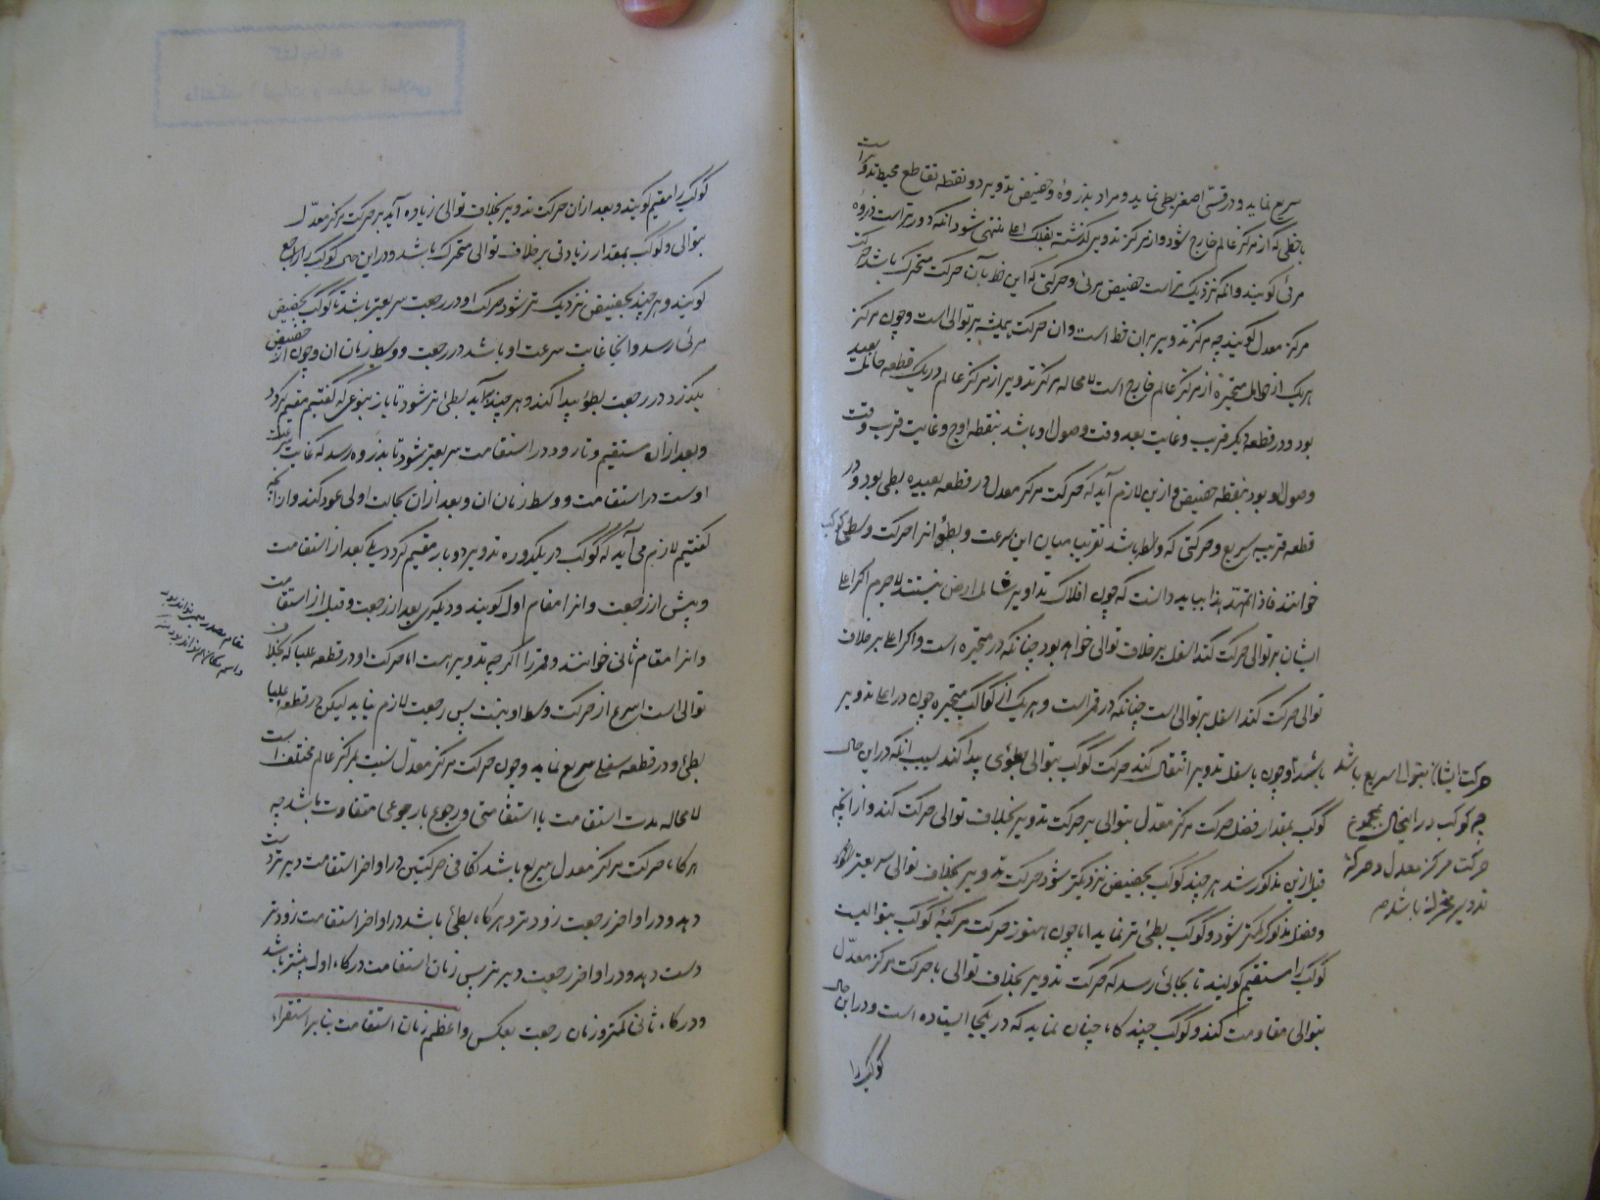 سریع نماید و در قسمی اصغر بطی نماید و مراد بذروه و حضیض تدویر دو نقطه تقاطع محیط تدویر است
با خطی که از مرکز عالم خارج شود و از مرکز تدویر گذشته بفلک اعلی منتهی شود آنکه دورتر است ذروه
مرئی گویند و آنکه نزدیک تر است حضیض مرئی و حرکتی که این خط بآن حرکت متحرک باشد حرکت
مرکز معدل گویند چه مرکز تدویر بران خط است و آن حرکت همیشه بر توالی است و چون مرکز
هر یک از حوامل متحیره از مرکز عالم خارج است لامحاله مرکز تدویر از مرکز عالم در یک قطعه حامل بعید
بود و در قطعه دیگر قریب و غایت بعد وقت وصول او باشد بنقطه اوج و غایت قرب وقت
وصول او بود بنقطه حضیض و ازین لازم آید که حرکت مرکز معدل در قطعه بعیده بطی بود و در
قطعه قریبه سریع و حرکتی که وسط باشد تقریبا میان این سرعت و بطؤ انرا حرکت وسطی کوکب
خوانند فاذا تمهد هذا بباید دانست که چون افلاک تداویر شامل ارض نیستند لاجرم اگر اعلی
ایشان بر توالی حرکت کند اسفل بر خلاف توالی خواهد بود چنانکه در متحیره است و اگر اعلی بر خلاف
توالی حرکت کند اسفل بر توالی است چنانکه در قمر است و هر یک از کواکب متحیره چون در اعلی تدویر
باشند و چون باسفل تدویر انتقال کند حرکت کوکب بتوالی بطوئی پیدا کند بسبب آنکه در این حال
کوکب بمقدار فضل حرکت مرکز معدل بتوالی بر حرکت تدویر بخلاف توالی حرکت کند و از آنچه
قبل ازین مذکور شد هر چند کوکب بحضیض نزدیکتر شود حرکت تدویر بخلاف توالی سریعتر شود
و فضل مذکور کمتر شود و کوکب بطئ تر نماید اما چون هنوز حرکت مرکبۀ کوکب بتوالیست
کوکب را مستقیم گویند تا بجائی رسد که حرکت تدویر بخلاف توالی با حرکت مرکز معدل
بتوالی مقاومت کند و کوکب چند گاه چنان نماید که در یکجا ایستاده است و در این حال
کوکب را
حرکت ایشان بتوالی سریع باشد
چه کوکب در اینحال بمجموع
حرکت مرکز معدل و حرکت
تدویر متحرک باشد
کوکب را مقیم گویند و بعد ازان حرکت تدویر بخلاف توالی زیاده آید بر حرکت مرکز معدل
بتوالی و کوکب بمقدار زیادتی بر خلاف توالی متحرک باشد و در این حال کوکب را راجع
گویند و هر چند بحضیض نزدیک تر شود حرکت او در رجعت سریعتر باشد تا کوکب بحضیض
مرئی رسد و آنجا غایت سرعت او باشد در رجعت و وسط زمان ان و چون از حضیض
بگذرد در رجعت بطؤ پیدا کند و هر چند برآید بطئ تر شود تا باز بنوعی که گفتیم مقیم گردد
و بعد ازان مستقیم و تا رود در استقامت سریعتر شود تا بذروه رسد که غایت سرعت
اوست در استقامت و وسط زمان ان و بعد ازان بحالت اولی عود کند و از آنچه
گفتیم لازم می آید که کوکب در یکدوره تدویر دو بار مقیم گردد یکی بعد از استقامت
و پیش از رجعت و انرا مقام اول گویند و دیگری بعد از رجعت و قبل از استقامت
و انرا مقام ثانی خوانند و قمر را اگر چه تدویر هست اما حرکت او در قطعه علیا که بخلاف
توالی است اسرع از حرکت وسط او نیست پس رجعت لازم نیاید لیکن در قطعه علیا
بطئ و در قطعه سفلی سریع نماید و چون حرکت مرکز معدل نسبت بمرکز عالم مختلف است
لامحاله مدت استقامت با استقامتی و رجوع با رجوعی متفاوت باشد چه
هر گاه حرکت مرکز معدل سریع باشد تکافی حرکتین در اواخر استقامت دیرتر دست
دهد و در اواخر رجعت زودتر و هر گاه بطئ باشد در اواخر استقامت زودتر
دست دهد و در اواخر رجعت دیرتر پس زمان استقامت در گاه اول بیشتر باشد
و در گاه ثانی کمتر و زمان رجعت بعکس و اعظم زمان استقامت بنابر استقراء